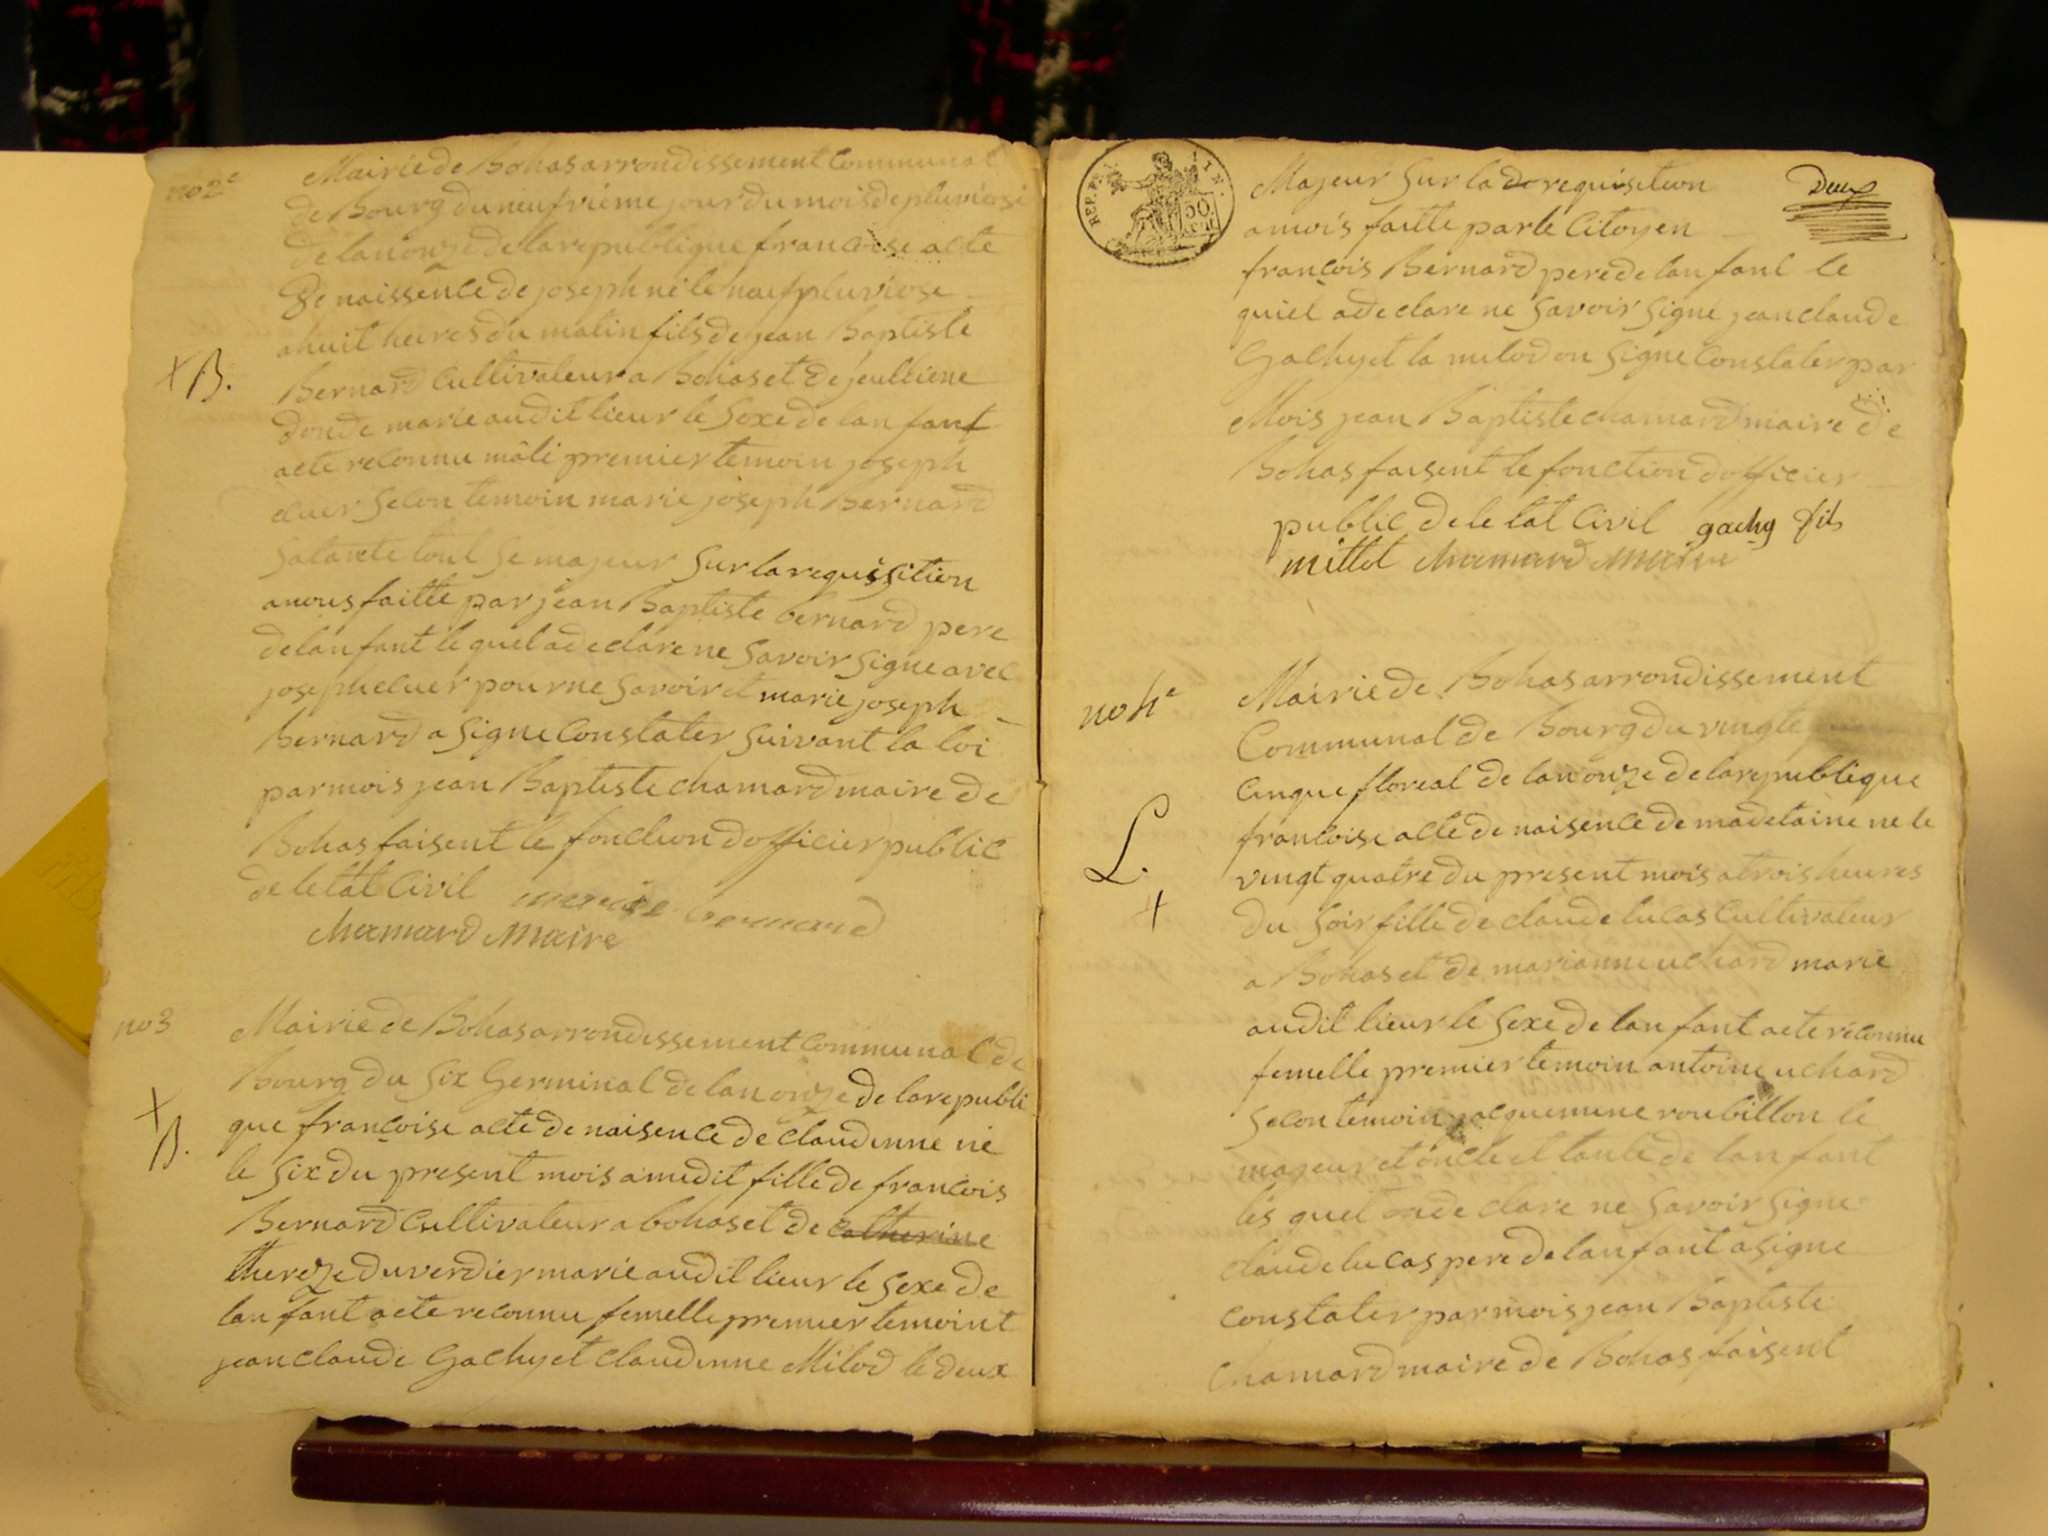 no 2e
Mairie de Bohas arrondissement Communal
de Bourg du neufvième jour du mois de pluviose
de lan onze de la republique francoise acte
de naissence de joseph né le neuf pluviose
a huit heures du matin fils de jean Baptiste
+ B.
Bernard Cultivateur a Bohas et de
marie audit lieur le Sexe de lanfant
aete reconnu mâle premier temoin joseph
cluer Secon temoin marie joseph Bernard
majeur Sur la requisition
anous faitte par jean Baptiste bernard pere
de lanfant le quel a declare ne Savoir Signe avec
joseph cluer pour ne Savoir et marie joseph
Bernard a Signe Constater Suivant la loi
par mois jean Baptiste chamard maire de
Bohas faisent le fonction dofficier public
de letat Civil marie bernard
chamard maire
no 3
Mairie de Bohas arrondissement Communal de
Bourg du Six Germinal de lan onze de la republi
que francoise acte de naisence de claudinne né
+ B.
le Six du present mois a midit fille de francois
Bernard Cultivateur a bohas et de catherine
thereze duverdier marie audit lieur le Sexe de
lanfant aete reconnu femelle premier temoint
jean claude Gachy et claudinne Milod le deux
REP. FRA.
50
Deux
Majeur Sur la de requisition
a mois faitte par le Citoyen
francois Bernard pere de lanfant le
quiel a declare ne Savoir Signe jean claude
Gachy et la milod on Signe Constater par
Mois jean Baptiste chamard maire de
Bohas faisent le fonction dofficier
public de letat Civil gachy fils
millot chamard maire
no 4e
Mairie de Bohas arrondissement
Communal de Bourg du vingte
Cinque floreal de lan onze de la republique
francoise acte de naisence de madelaine ne le
L.
vingt quatre du present mois a trois heures
+
du Soir fille de claude lucas Cultivateur
a Bohas et de marianne uchard marie
audit lieur le Sexe de lanfant aete reconnu
femelle premier temoin antoine uchard
Secon temoin jacquemine roubillon le
majeur et oncle et tante de lanfant
les quel on declare ne Savoir Signe
claude lucas pere de lanfant a Signe
Constater par mois jean Baptiste
Chamard maire de Bohas faisent